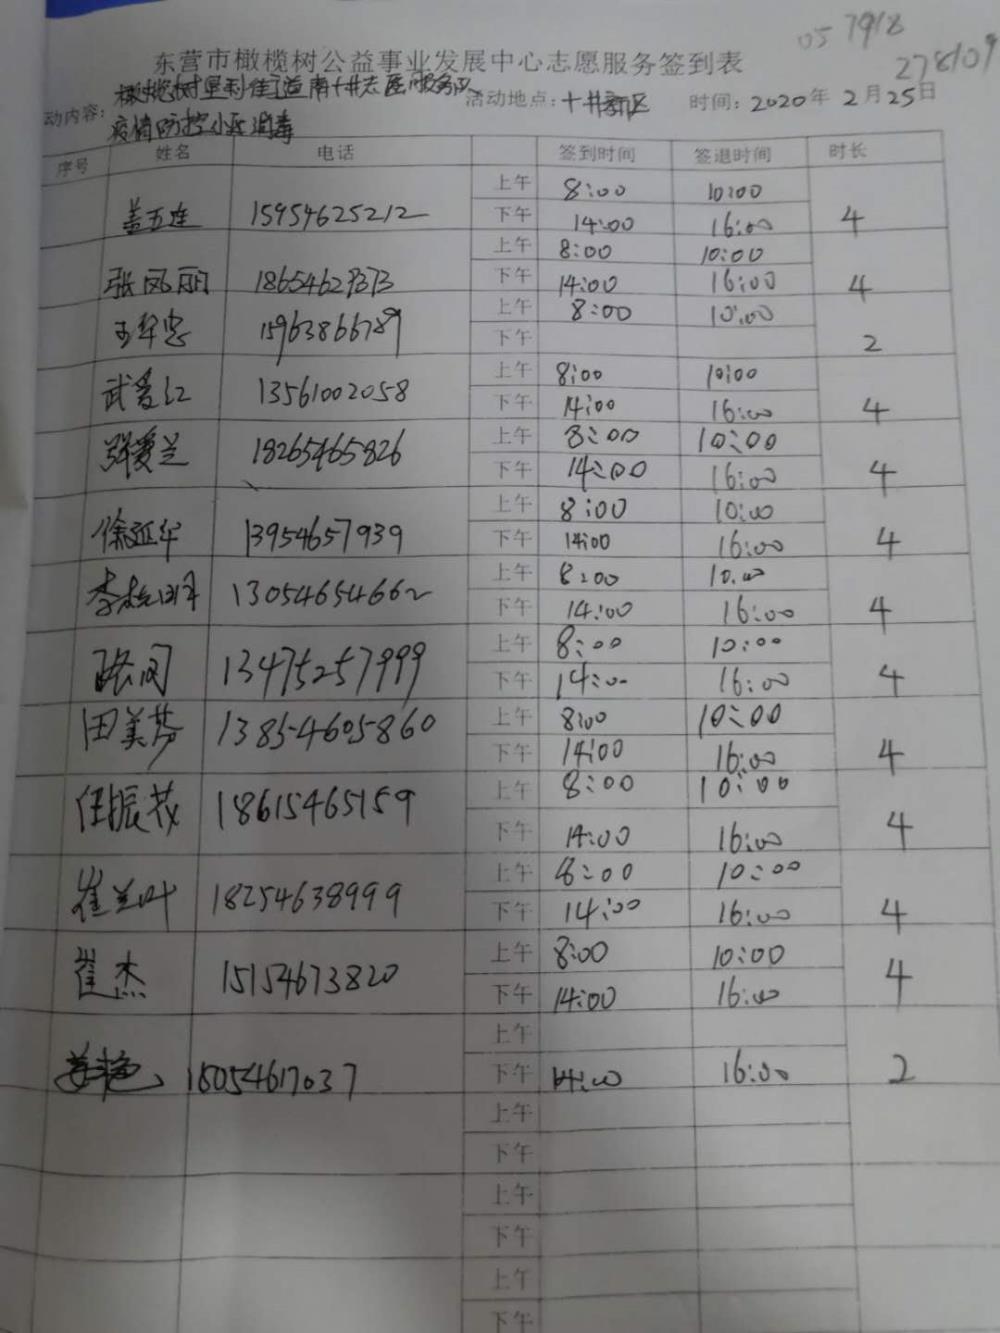 057918
278109
东营市橄榄树公益事业发展中心志愿服务签到表
动内容: 橄榄树垦利街道南十井志愿服务队 活动地点: 十井新区 时间: 2020年2月25日
疫情防控小区消毒
序号 姓名 电话 签到时间 签退时间 时长
上午 8:00 10:00
盖五连 15954625212 下午 14:00 16:00 4
上午 8:00 10:00
张凤丽 下午 14:00 16:00 4
上午 8:00 10:00
15963866789 下午 2
上午 8:00 10:00
武爱红 13561002058 下午 14:00 16:00 4
上午 8:00 10:00
张爱兰 18265465826 下午 14:00 16:00 4
上午 8:00 10:00
徐延华 13954657939 下午 14:00 16:00 4
上午 8:00 10:00
13054654662 下午 14:00 16:00 4
上午 8:00 10:00
13475257999 下午 14:00 16:00 4
上午 8:00 10:00
田美芬 13854605860 下午 14:00 16:00 4
上午 8:00 10:00
任振茂 18615465159 下午 14:00 16:00 4
上午 8:00 10:00
崔兰叶 18254638999 下午 14:00 16:00 4
上午 8:00 10:00
崔杰 15154673820 下午 14:00 16:00 4
上午
18054617037 下午 14:00 16:00 2
上午
下午
上午
下午
上午
下午